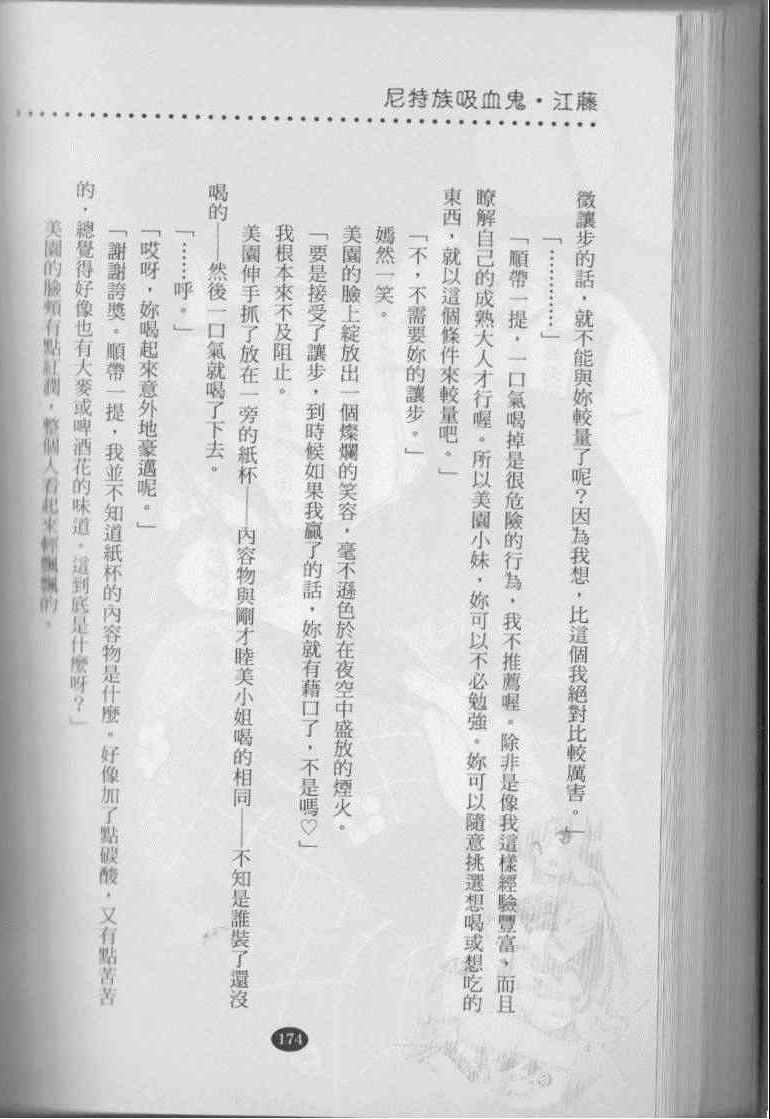 尼特族吸血鬼・江藤
微讓步的話，就不能與妳較量了呢？因為我想，比這個我絕對比較厲害。」
「…………」
「順帶一提，一口氣喝掉是很危險的行為，我不推薦喔。除非是像我這樣經驗豐富、而且
瞭解自己的成熟大人才行喔。所以美園小妹，妳可以不必勉強。妳可以隨意挑選想喝或想吃的
東西，就以這個條件來較量吧。」
「不，不需要妳的讓步。」
嫣然一笑。
美園的臉上綻放出一個燦爛的笑容，毫不遜色於在夜空中盛放的煙火。
「要是接受了讓步，到時候如果我贏了的話，妳就有藉口了，不是嗎♡」
我根本來不及阻止。
美園伸手抓了放在一旁的紙杯——內容物與剛才睦美小姐喝的相同——不知是誰裝了還沒
喝的——然後一口氣就喝了下去。
「……呼。」
「哎呀，妳喝起來意外地豪邁呢。」
「謝謝誇獎。順帶一提，我並不知道紙杯的內容物是什麼。好像加了點碳酸，又有點苦苦
的，總覺得好像也有大麥或啤酒花的味道。這到底是什麼呀？」
美園的臉頰有點紅潤，整個人看起來輕飄飄的。
174